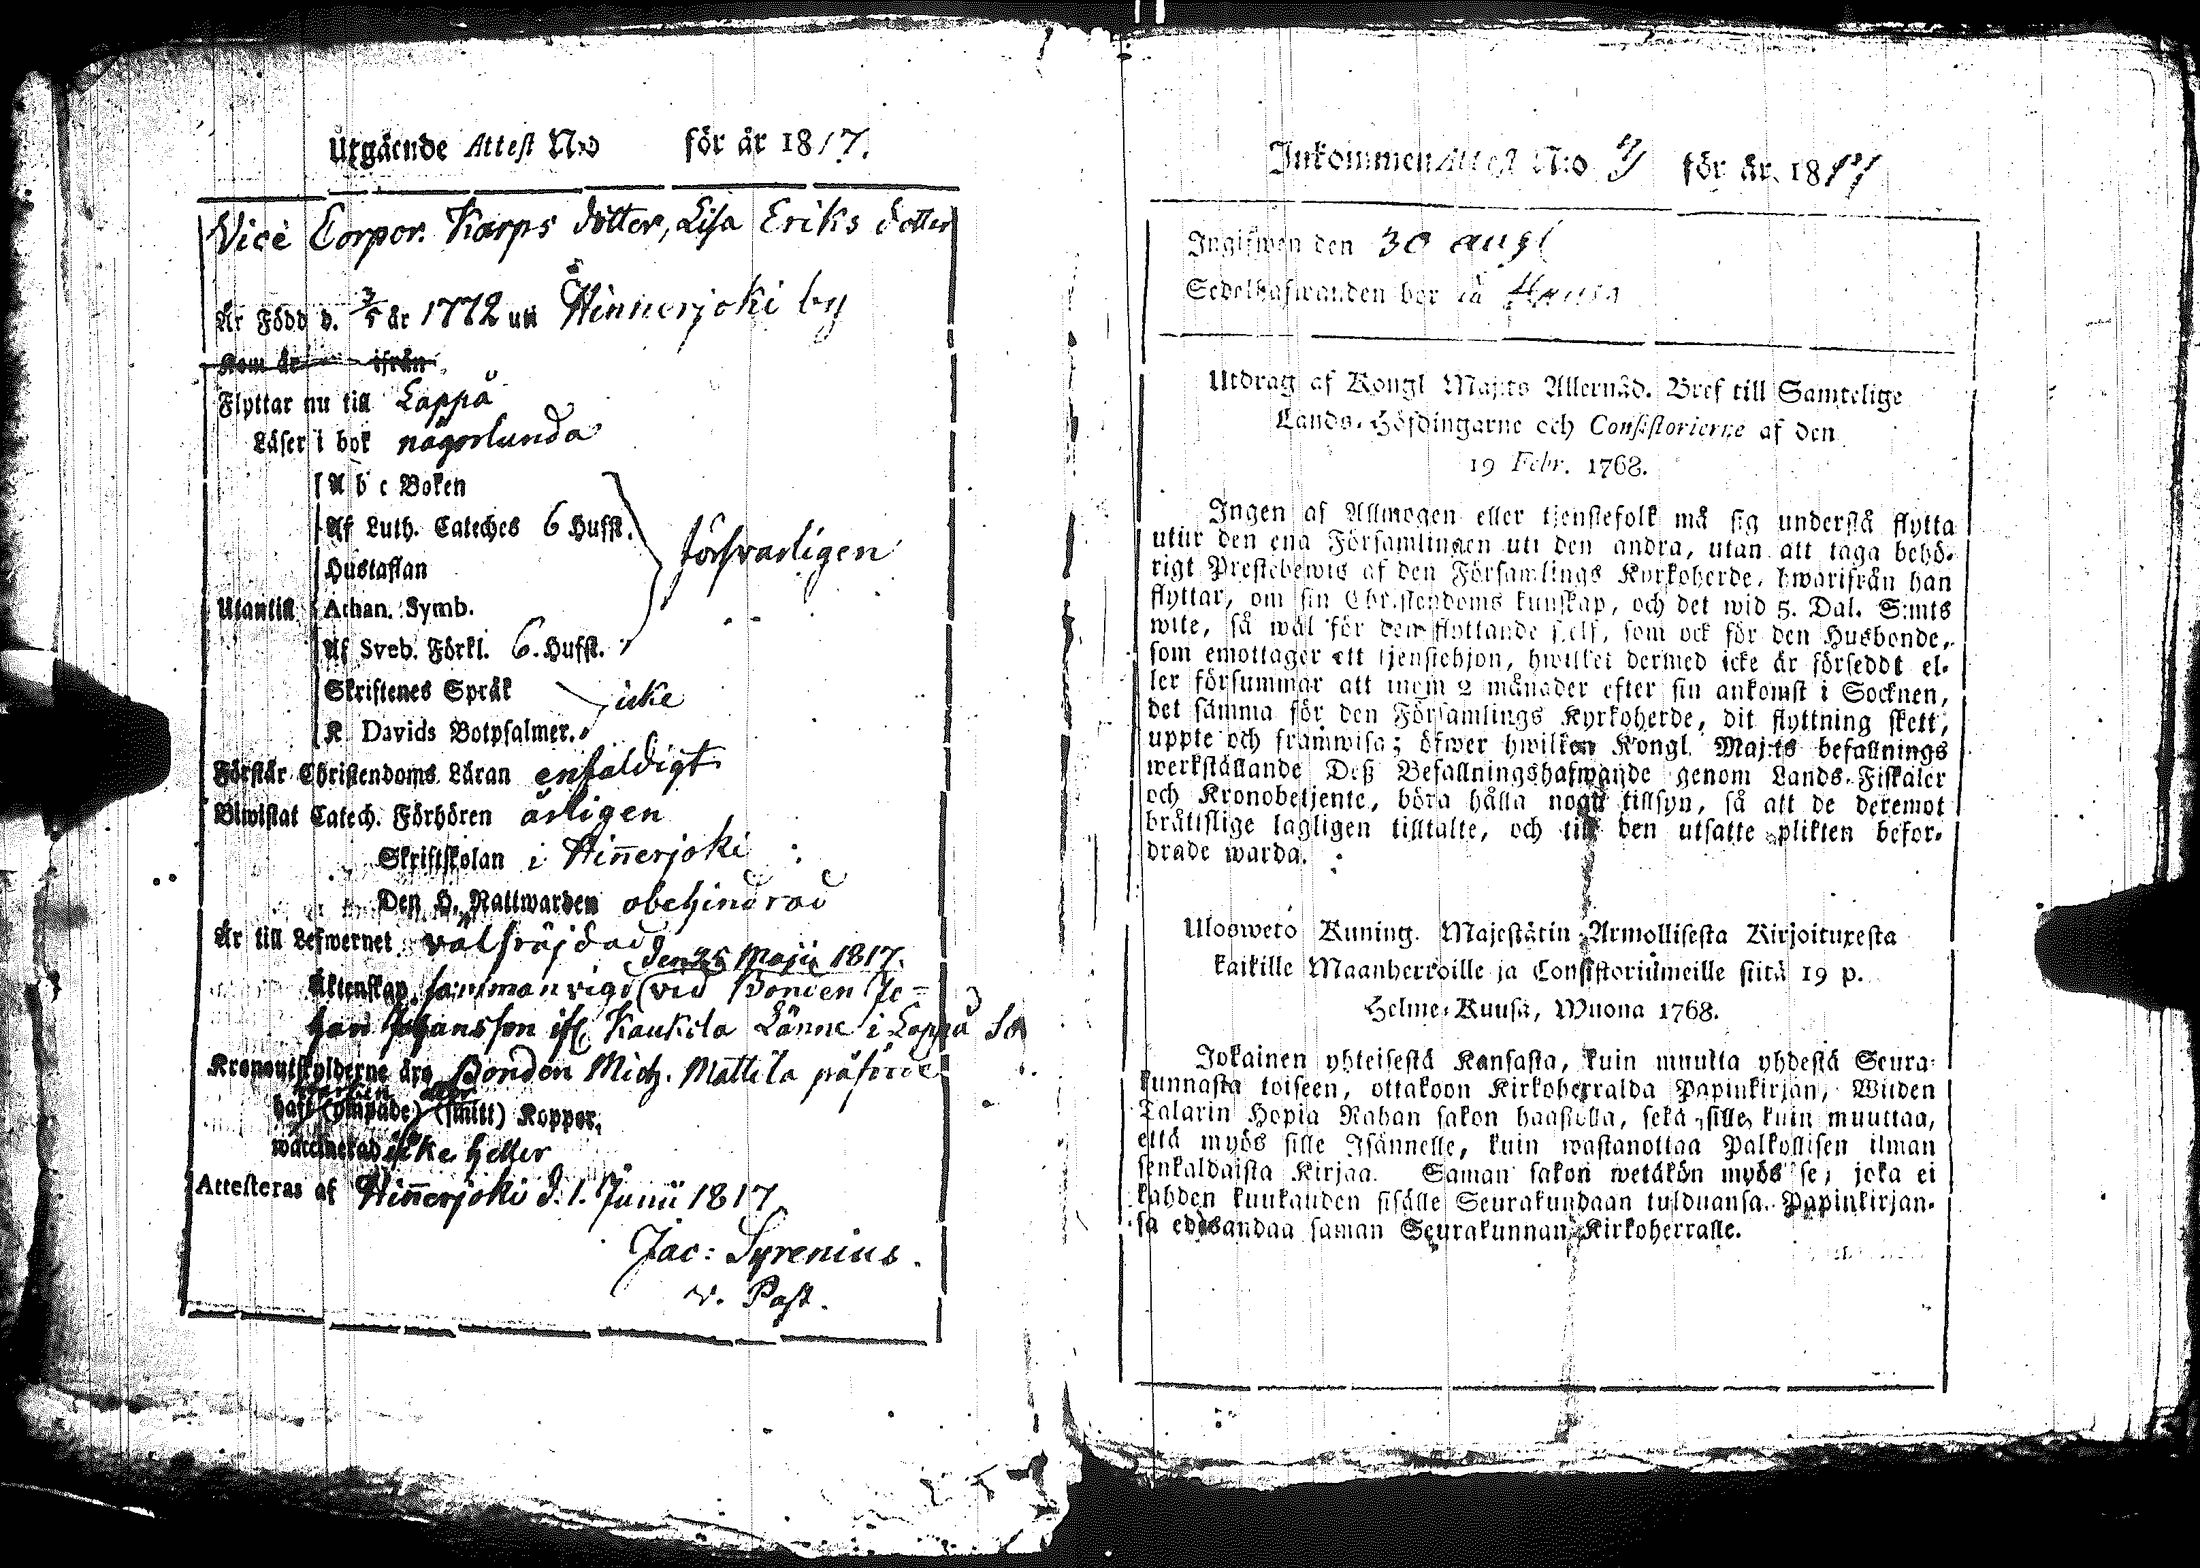 Utgående Attest N:o för år 1817.
Vice Corpor. Karps dotter, Lisa Eriks dotter
Är Född d. 3/5 år 1772 uti Hinnerjoki by
Kom år ifrån
Flyttar nu till Lappå
Läser i bok någorlunda
A b c Boken
Af Luth. Cateches 6 Hufst.
försvarligen
Hustaflan
Utantill Athan. Symb.
Af Sveb. Förkl. 6. Hufst.
Skriftenes Språk
icke
K. Davids Botpsalmer.
Förstår Christendoms Läran enfaldigt
Biwistat Catech. Förhören årligen
Skriftskolan i Hinnerjoki
Den H. Nattwarden obehindrad
Är till Lefwernet välfräjdad
den 25 Maji 1817.
Äktenskap sammanvigd vid Bonden Jo-
han Johansson ifr. Kaukila Länne i Lappå
Kronoutskylderne äro Bonden Mich. Mattila påförde
haft (ympade) (smitt) Koppor,
waccinerad icke heller
Attesteras af Hinnerjoki d. 1. Junii 1817
Jac: Syrenius.
v. Past.
Inkommen Attest N:o för år 1817
Ingifwen den 30 augl
Sedelhafwanden bor i
Utdrag af Kongl Maj:ts Allernåd. Bref till Samtelige
Lands-Höfdingarne och Consistorierne af den
19 Febr. 1768.
Ingen af Allmogen eller tjenstefolk må sig understå flytta
utur den ena Församlingen uti den andra, utan att taga behö-
rigt Prestebewis af den Församlings Kyrkoherde, hwarifrån han
flyttar, om sin Christendoms kunskap, och det wid 5. Dal. S:mts
wite, så wäl för den flyttande sjelf, som ock för den Husbonde,
som emottager ett tjenstehjon, hwilket dermed icke är förseddt el-
ler försummar att inom 2 månader efter sin ankomst i Socknen,
det samma för den Församlings Kyrkoherde, dit flyttning skett,
uppte och framwisa; öfwer hwilken Kongl. Maj:ts befallnings
werkställande Deß Befallningshafwande genom Lands-Fiskaler
och Kronobetjente, böra hålla noga tillsyn, så att de deremot
bråttslige lagligen tilltalte, och till den utsatte plikten befor-
drade warda.
Ulosweto Kuning. Majestätin Armollisesta Kirjoituxesta
kaikille Maanherroille ja Consistoriumeille siitä 19 p.
Helme-Kuusa, Wuona 1768.
Jokainen yhteisestä Kansasta, kuin muutta yhdestä Seura-
kunnasta toiseen, ottakoon Kirkoherralda Papinkirjan, Wiiden
Talarin Hopia Rahan sakon haastolla, sekä sille, kuin muuttaa,
että myös sille Isännelle, kuin wastanottaa Palkollisen ilman
senkaldaista Kirjaa. Saman sakon wetäkön myös se, joka ei
kahden kuukauden sisälle Seurakundaan tulduansa Papinkirjan-
sa edesandaa saman Seurakunnan Kirkoherralle.